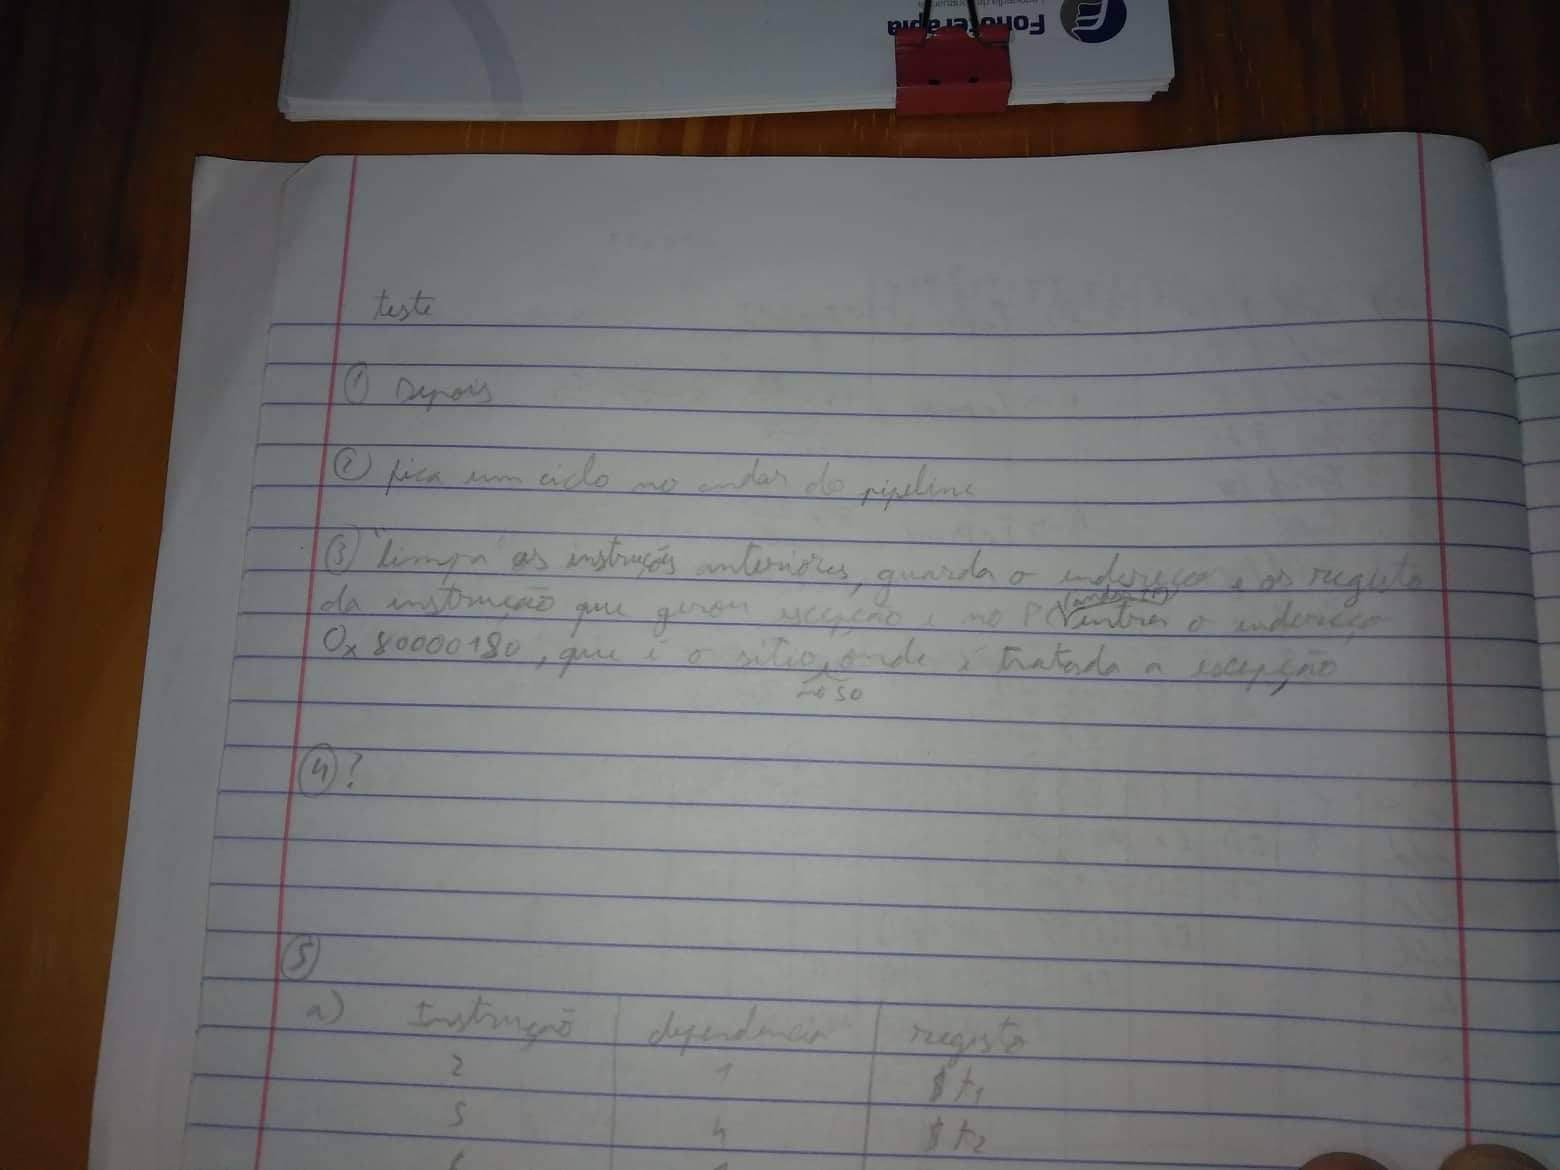 Fonoterapia
teste
① Depois
② fica um ciclo no andar do pipeline
③ "limpa" as instruções anteriores, guarda o endereço e os registo
da instrução que gerou excepção e no PC (andar IF) entra o endereço
0x80000180, que é o sitio, onde é tratada a excepção
no SO
④ ?
⑤
a) Instrução dependencia registo
2 1 $t1
5 4 $t2